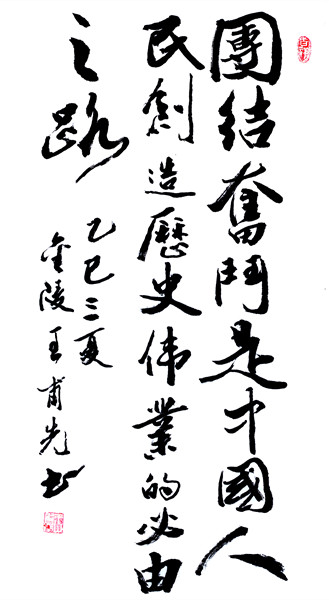 團结奮鬥是中國人
民創造歷史伟業的必由
之路
乙巳之夏
金陵王甫先书